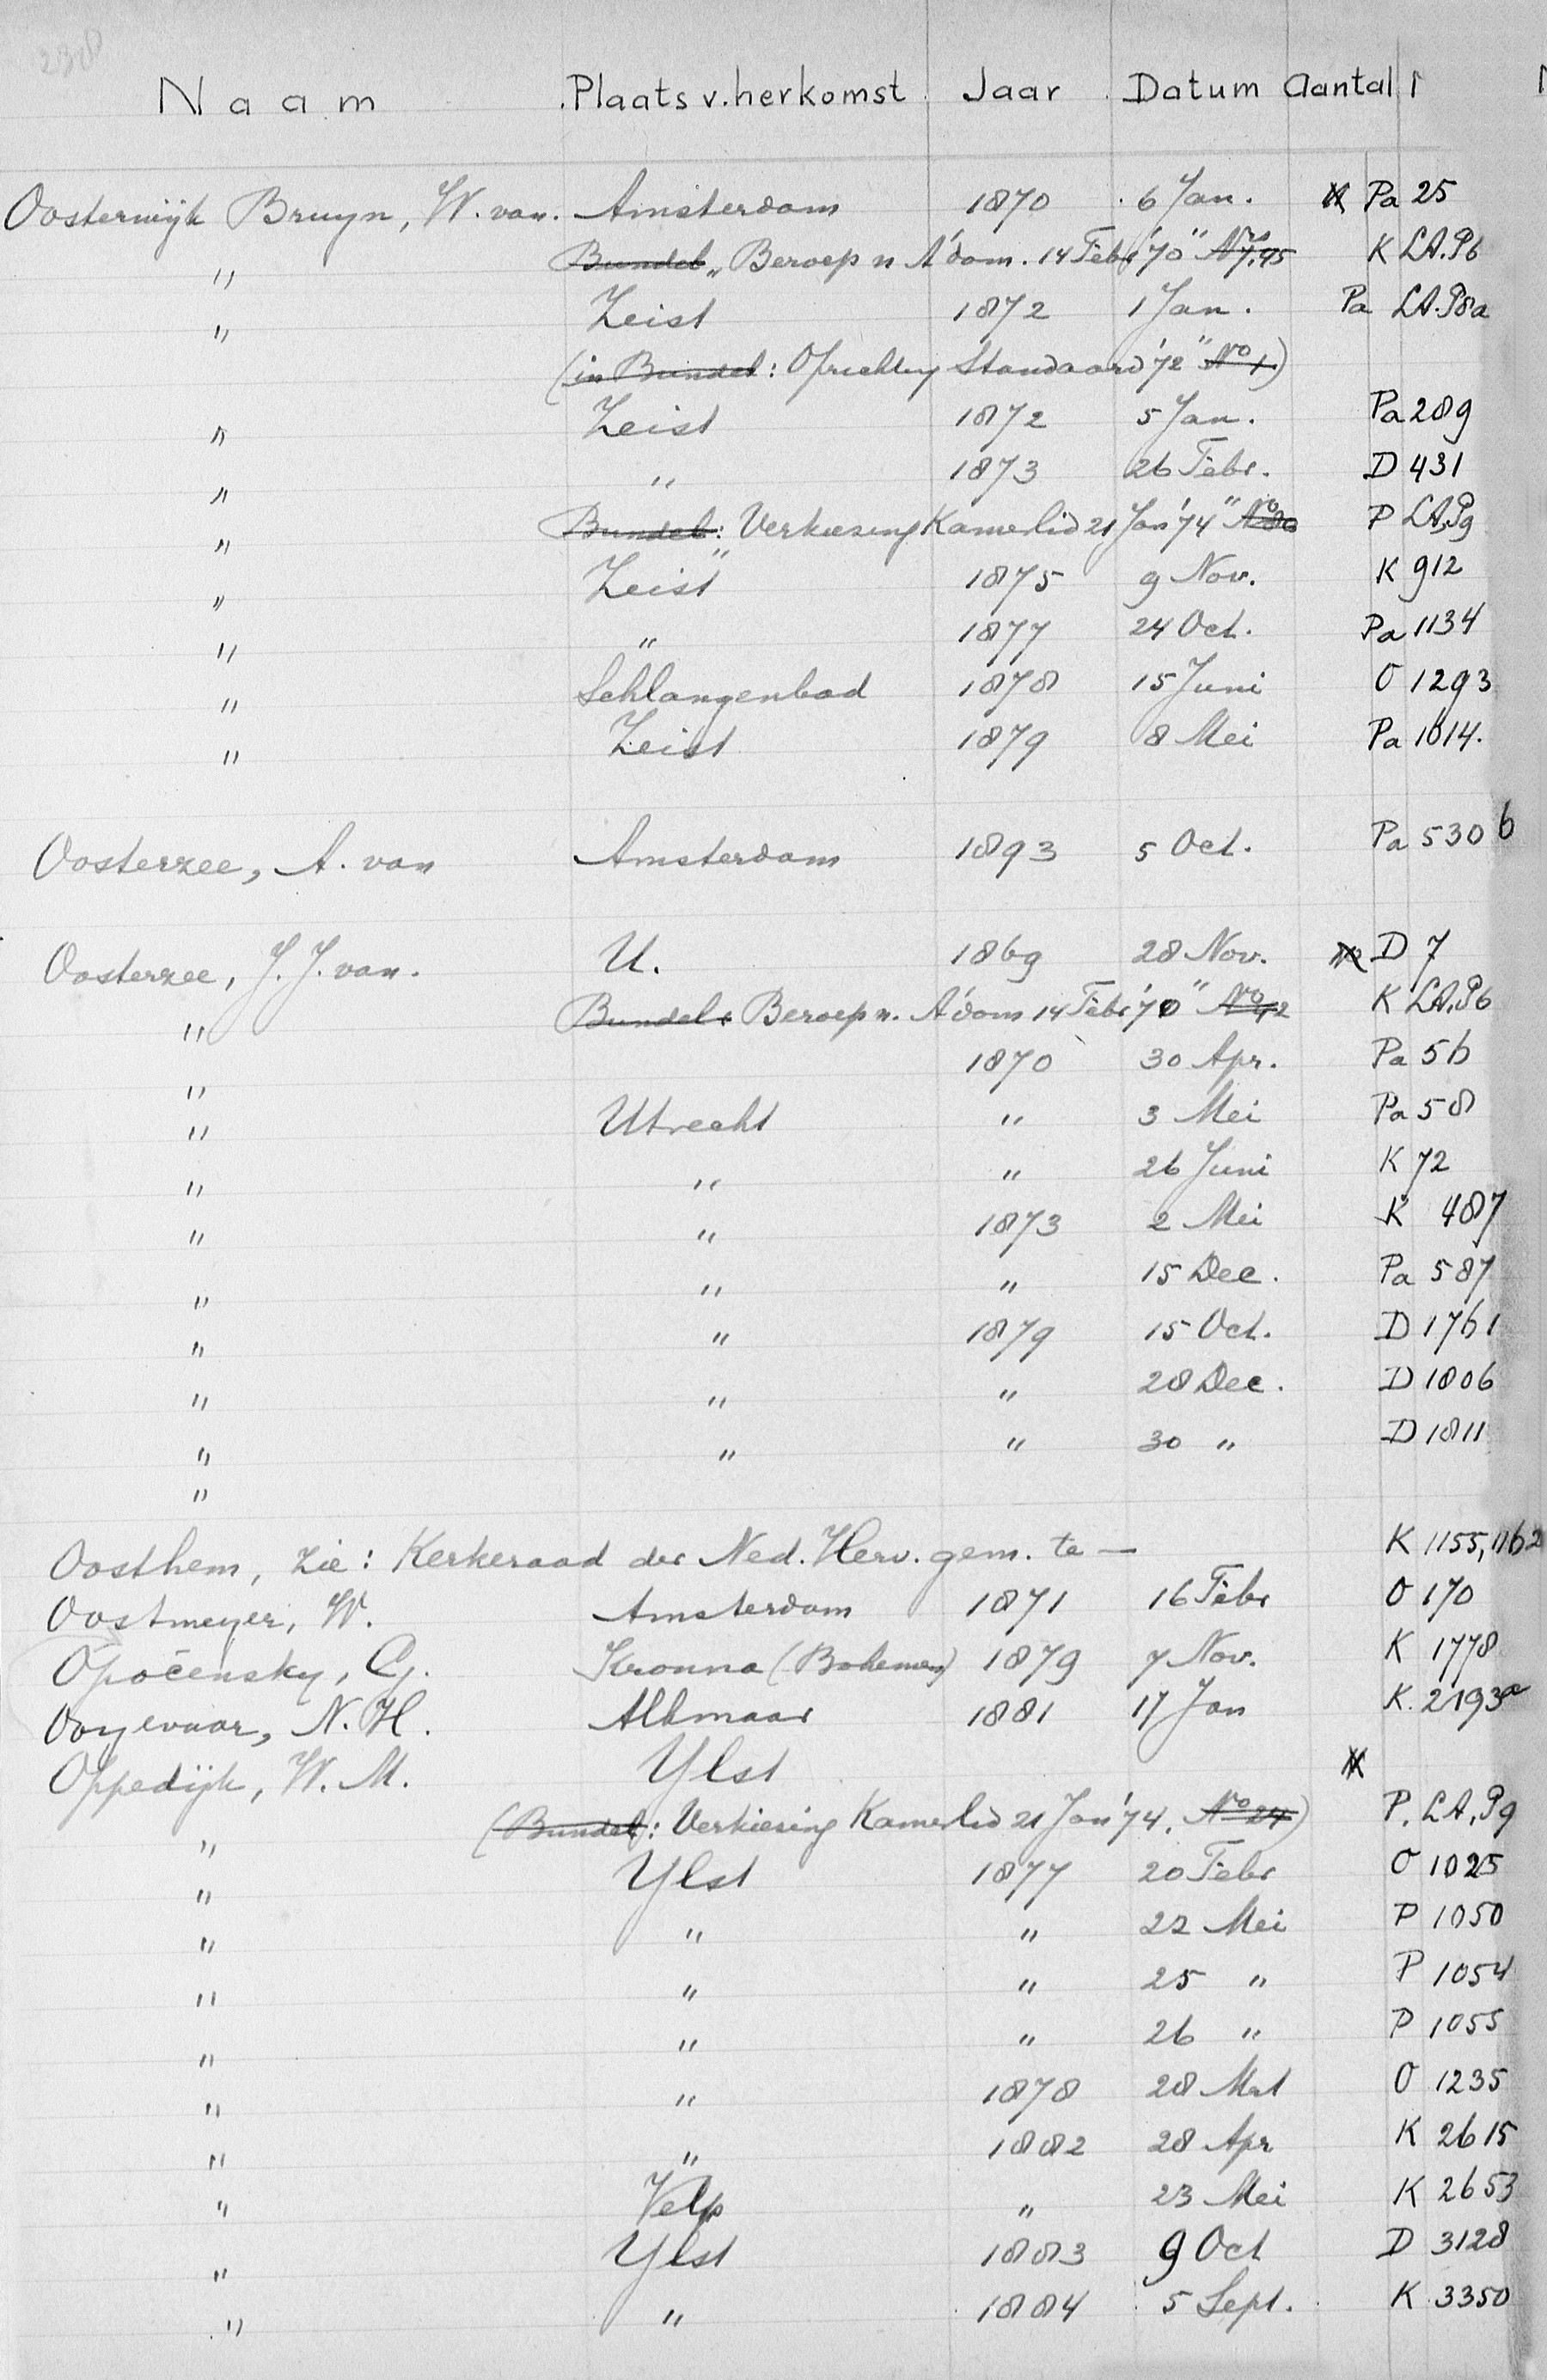 238
Naam Plaats v. herkomst Jaar Datum Aantal
Oosterwijk Bruyn, W. van. Amsterdam 1870 6 Jan. Pa 25
" Bundel „Beroep n A'dam. 14 Febr '70" K LA.P6
" Zeist 1872 1 Jan. Pa LA.P8a
(in Bundel: Oprichting Standaard '72" No 1)
" Zeist 1872 5 Jan. Pa 289
" " 1873 26 Febr. D 431
" Bundel: Verkiesing Kamerlid 21 Jan '74" P LA.P9
" Zeist 1875 9 Nov. K 912
" " 1877 24 Oct. Pa 1134
" Schlangenbad 1878 15 Juni O 1293
" Zeist 1879 8 Mei Pa 1614.
Oosterzee, A. van Amsterdam 1893 5 Oct. Pa 530 b
Oosterzee, J. J. van. U. 1869 28 Nov. D 7
" Bundel: Beroep n. A'dam 14 Febr '70" No 42 K LA.P6
" 1870 30 Apr. Pa 56
" Utrecht " 3 Mei Pa 58
" " " 26 Juni K 72
" " 1873 2 Mei K 487
" " " 15 Dec. Pa 587
" " 1879 15 Oct. D 1761
" " " 28 Dec. D 1806
" " " 30 " D 1811
"
Oosthem, zie: Kerkeraad der Ned. Herv. gem. te — K 1155, 1162
Oostmeyer, W. Amsterdam 1871 16 Febr O 170
Opočensky, G. Kronna (Bohemen) 1879 7 Nov. K 1778
Ooyevaar, N. H. Alkmaar 1881 17 Jan K. 2193a
Oppedijk, W. M. Ylst
" (Bundel: Verkiesing Kamerlid 21 Jan '74, No 24) P. LA.P9
" Ylst 1877 20 Febr O 1025
" " " 22 Mei P 1050
" " " 25 " P 1054
" " " 26 " P 1055
" " 1878 28 Mrt O 1235
" " 1882 28 Apr K 2615
" Velp " 23 Mei K 2653
" Ylst 1883 9 Oct D 3128
" " 1884 5 Sept. K 3350